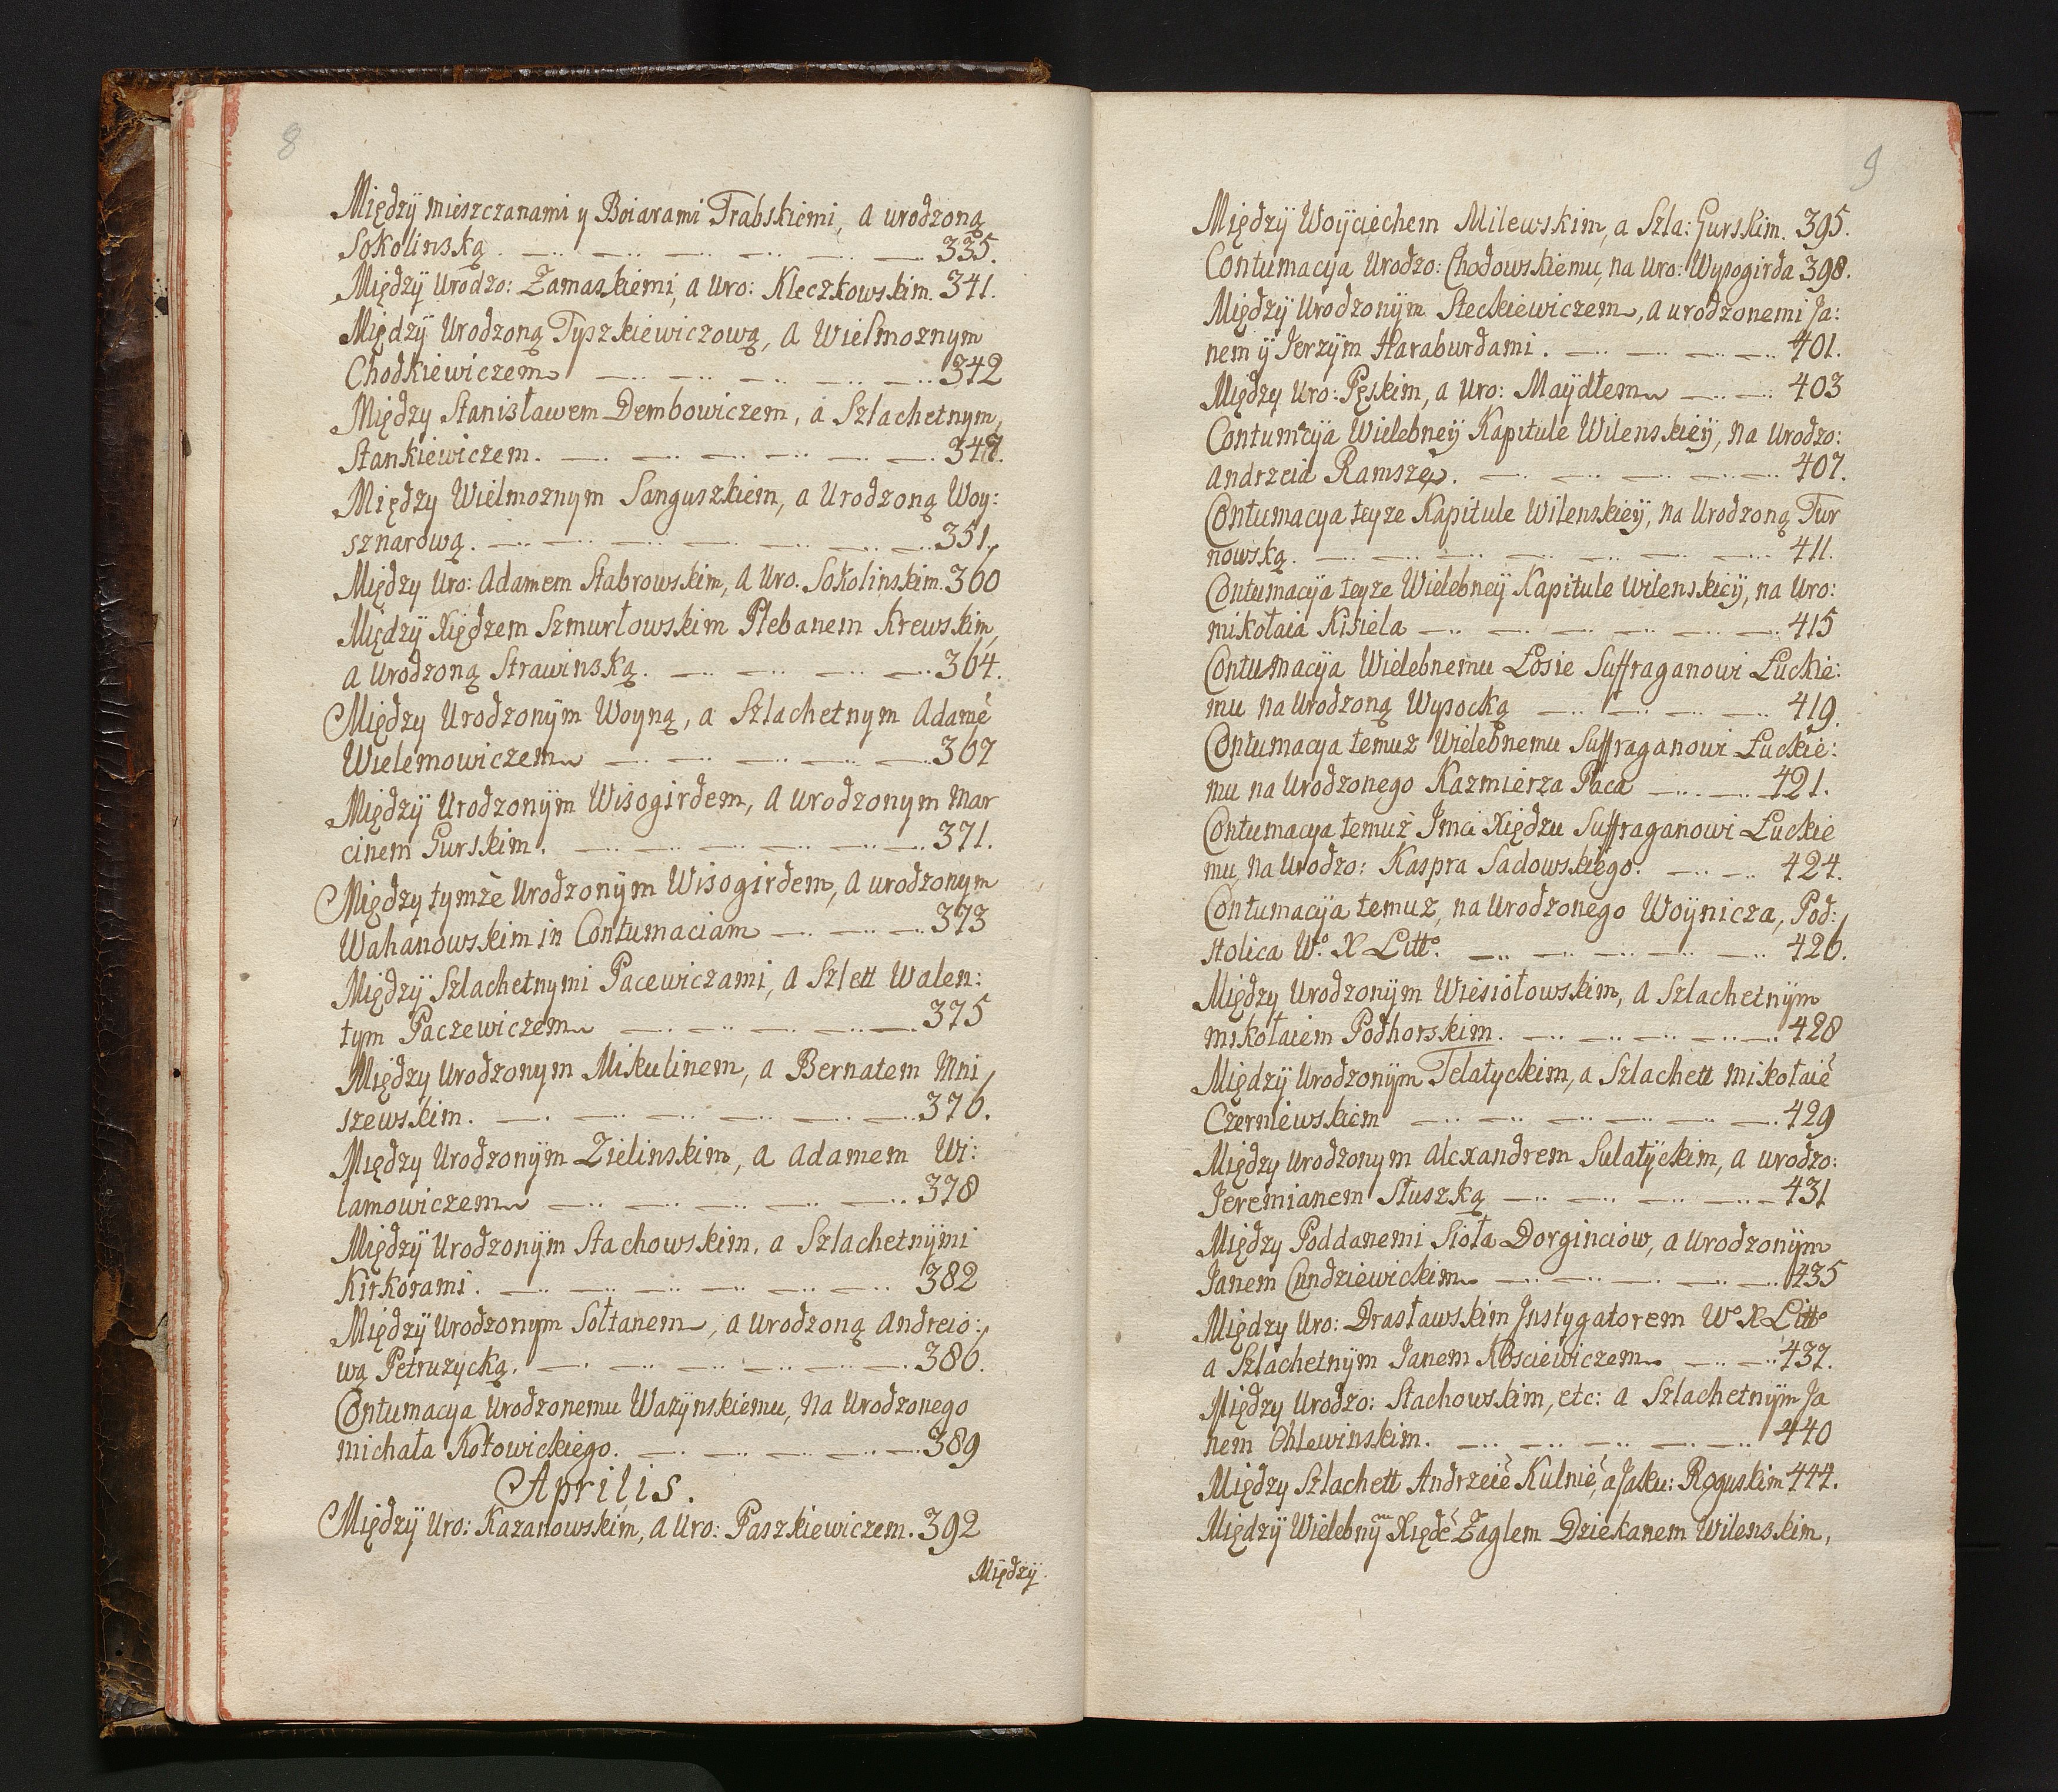 8
Międzÿ mieszczanami y Boiarami Trabskiemi, a urodzoną
Sokolinską. 335.
Międzÿ Urodzo: Zamaskiemi, a Uro: Kleczkowskim. 341.
Międzÿ Urodzoną Tyszkiewiczową, a Wielmoznym
Chodkiewiczem 342
Między Stanisławem Dembowiczem, a Szlachetnym,
Stankiewiczem. 347.
Między Wielmoznym Sanguszkiem, a Urodzoną Woy:
sznarową. 351.
Międzÿ Uro: Adamem Stabrowskim, a Uro. Sokolinskim. 360
Międzÿ Xiędzem Szmurłowskim Plebanem Krewskim,
a Urodzoną Strawinską. 364.
Międzÿ Urodzonÿm Woyną, a Szlachetnym Adamē
Wielemowiczem 367
Międzÿ Urodzonÿm Wisogirdem, a urodzonym Mar
cinem Gurskim. 371.
Między tymże Urodzonÿm Wisogirdem, a urodzonym
Wahanowskim in Contumaciam 373
Międzÿ Szlachetnymi Pacewiczami, a Szlett Walen:
tym Paczewiczem 375
Między Urodzonym Mikulinem, a Bernatem Mni
szewskim. 376.
Między Urodzonÿm Zielinskim, a Adamem Wi:
lamowiczem 378
Międzÿ Urodzonÿm Stachowskim, a Szlachetnÿmi
Kirkorami. 382
Międzÿ Urodzonym Sołtanem, a Urodzoną Andreio:
wą Petruzycką. 386.
Contumacya Urodzonemu Wazynskiemu, na Urodzonego
michała Kołowickiego. 389
Aprilis.
Międzÿ Uro: Kazanowskim, a Uro: Paszkiewiczem. 392
Międzÿ
9
Międzÿ Woÿciechem Milewskim, a Szla: Gurskim. 395.
Contumacÿa Urodzo: Chodowskiemu, na Uro: Wysogirda 398.
Międzÿ Urodzonÿm Steckiewiczem, a urodzonemi Ja:
nem ÿ Jerzÿm Haraburdami. 401.
Między Uro: Pęskim, a Uro: Maÿdłem 403
Contumacÿa Wielebneÿ Kapitule Wilenskieÿ, na Urodzo:
Andrzeia Ramszę. 407.
Contumacya teyze Kapitule Wilenskieÿ, na Urodzoną Tur
nowską. 411.
Contumacÿa teyze Wielebneÿ Kapitule Wilenskieÿ, na Uro:
mikołaia Kisiela 415
Contumacÿa Wielebnemu Łosie Suffraganowi Łuckie:
mu na Urodzoną Wysocką 419.
Contumacya temuz Wielebnemu Suffraganowi Łuckie:
mu na Urodzonego Kazmierza Paca 421.
Contumacya temuz Jmci Xiędzu Suffraganowi Łuckie
mu, na Urodzo: Kaspra Sadowskiego. 424.
Contumacÿa temuz, na Urodzonego Woÿnicza, Pod:
stolica Wº X Littº. 426.
Między Urodzonÿm Wiesiołowskim, a Szlachetnÿm
mikołaiem Podhorskim. 428
Międzÿ Urodzonÿm Telatyckim, a Szlachett mikołaiē
Czerniewskiem 429
Między Urodzonym Alexandrem Sulatÿckim, a urodzo:
Jeremianem Słuszką 431
Między Poddanemi Sioła Dorginciow, a Urodzonÿm
Janem Cundziewickim 435
Między Uro: Drasławskim Jnstygatorem Wº X Littº
a Szlachetnÿm Janem Kosciewiczem 437.
Między Urodzo: Stachowskim, etc: a Szlachetnÿm Ja
nem Chlewinskim. 440
Między Szlachett Andrzeiē Kulniē, a Jaku: Roguskim 444.
Międzÿ Wielebnÿm Xiędzē Zaglem Dziekanem Wilenskim,